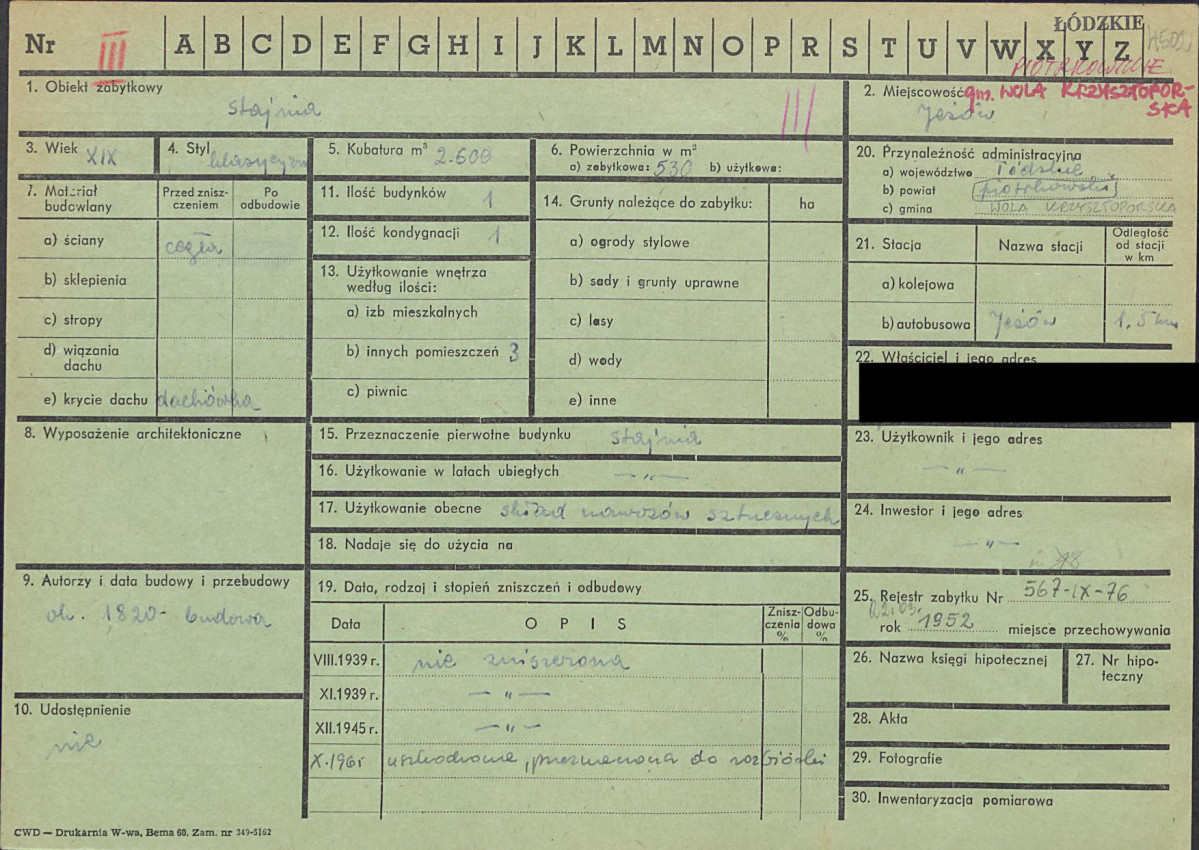 ŁÓDZKIE
Nr III A B C D E F G H I J K L M N O P R S T U V W X Y Z
PIOTRKOWSKIE
1. Obiekt zabytkowy
stajnia
III
2. Miejscowość gm. WOLA KRZYSZTOPOR-
SKA
Jeżów
3. Wiek XIX
4. Styl klasycyzm
5. Kubatura m³ 2.600
6. Powierzchnia w m²
a) zabytkowa: 530 b) użytkowa:
20. Przynależność administracyjna
a) województwo łódzkie
b) powiat piotrkowski
c) gmina WOLA KRZYSZTOPORSKA
7. Materiał budowlany
Przed znisz-
czeniem
Po
odbudowie
a) ściany cegła
b) sklepienia
c) stropy
d) wiązania
dachu
e) krycie dachu dachówka
11. Ilość budynków 1
12. Ilość kondygnacji 1
13. Użytkowanie wnętrza
według ilości:
a) izb mieszkalnych
b) innych pomieszczeń 3
c) piwnic
14. Grunty należące do zabytku: ha
a) ogrody stylowe
b) sady i grunty uprawne
c) lasy
d) wody
e) inne
21. Stacja
Nazwa stacji
Odległość
od stacji
w km
a) kolejowa
b) autobusowa Jeżów 1,5 km
22. Właściciel i jego adres
8. Wyposażenie architektoniczne
15. Przeznaczenie pierwotne budynku stajnia
16. Użytkowanie w latach ubiegłych — „ —
17. Użytkowanie obecne skład nawozów sztucznych
18. Nadaje się do użycia na
23. Użytkownik i jego adres
— „ —
24. Inwestor i jego adres
— „ —
9. Autorzy i data budowy i przebudowy
ok. 1820 - budowa
10. Udostępnienie
nie
19. Data, rodzaj i stopień zniszczeń i odbudowy
Data
O P I S
Znisz-
czenia
%
Odbu-
dowa
%
VIII.1939 r. nie zniszczona
XI.1939 r. — „ —
XII.1945 r. — „ —
X.1961 uszkodzona, przeznaczona do rozbiórki
25. Rejestr zabytku Nr 567-IX-76
rok 1952 miejsce przechowywania
26. Nazwa księgi hipotecznej
27. Nr hipo-
teczny
28. Akta
29. Fotografie
30. Inwentaryzacja pomiarowa
CWD — Drukarnia W-wa, Bema 60. Zam. nr 349-5162